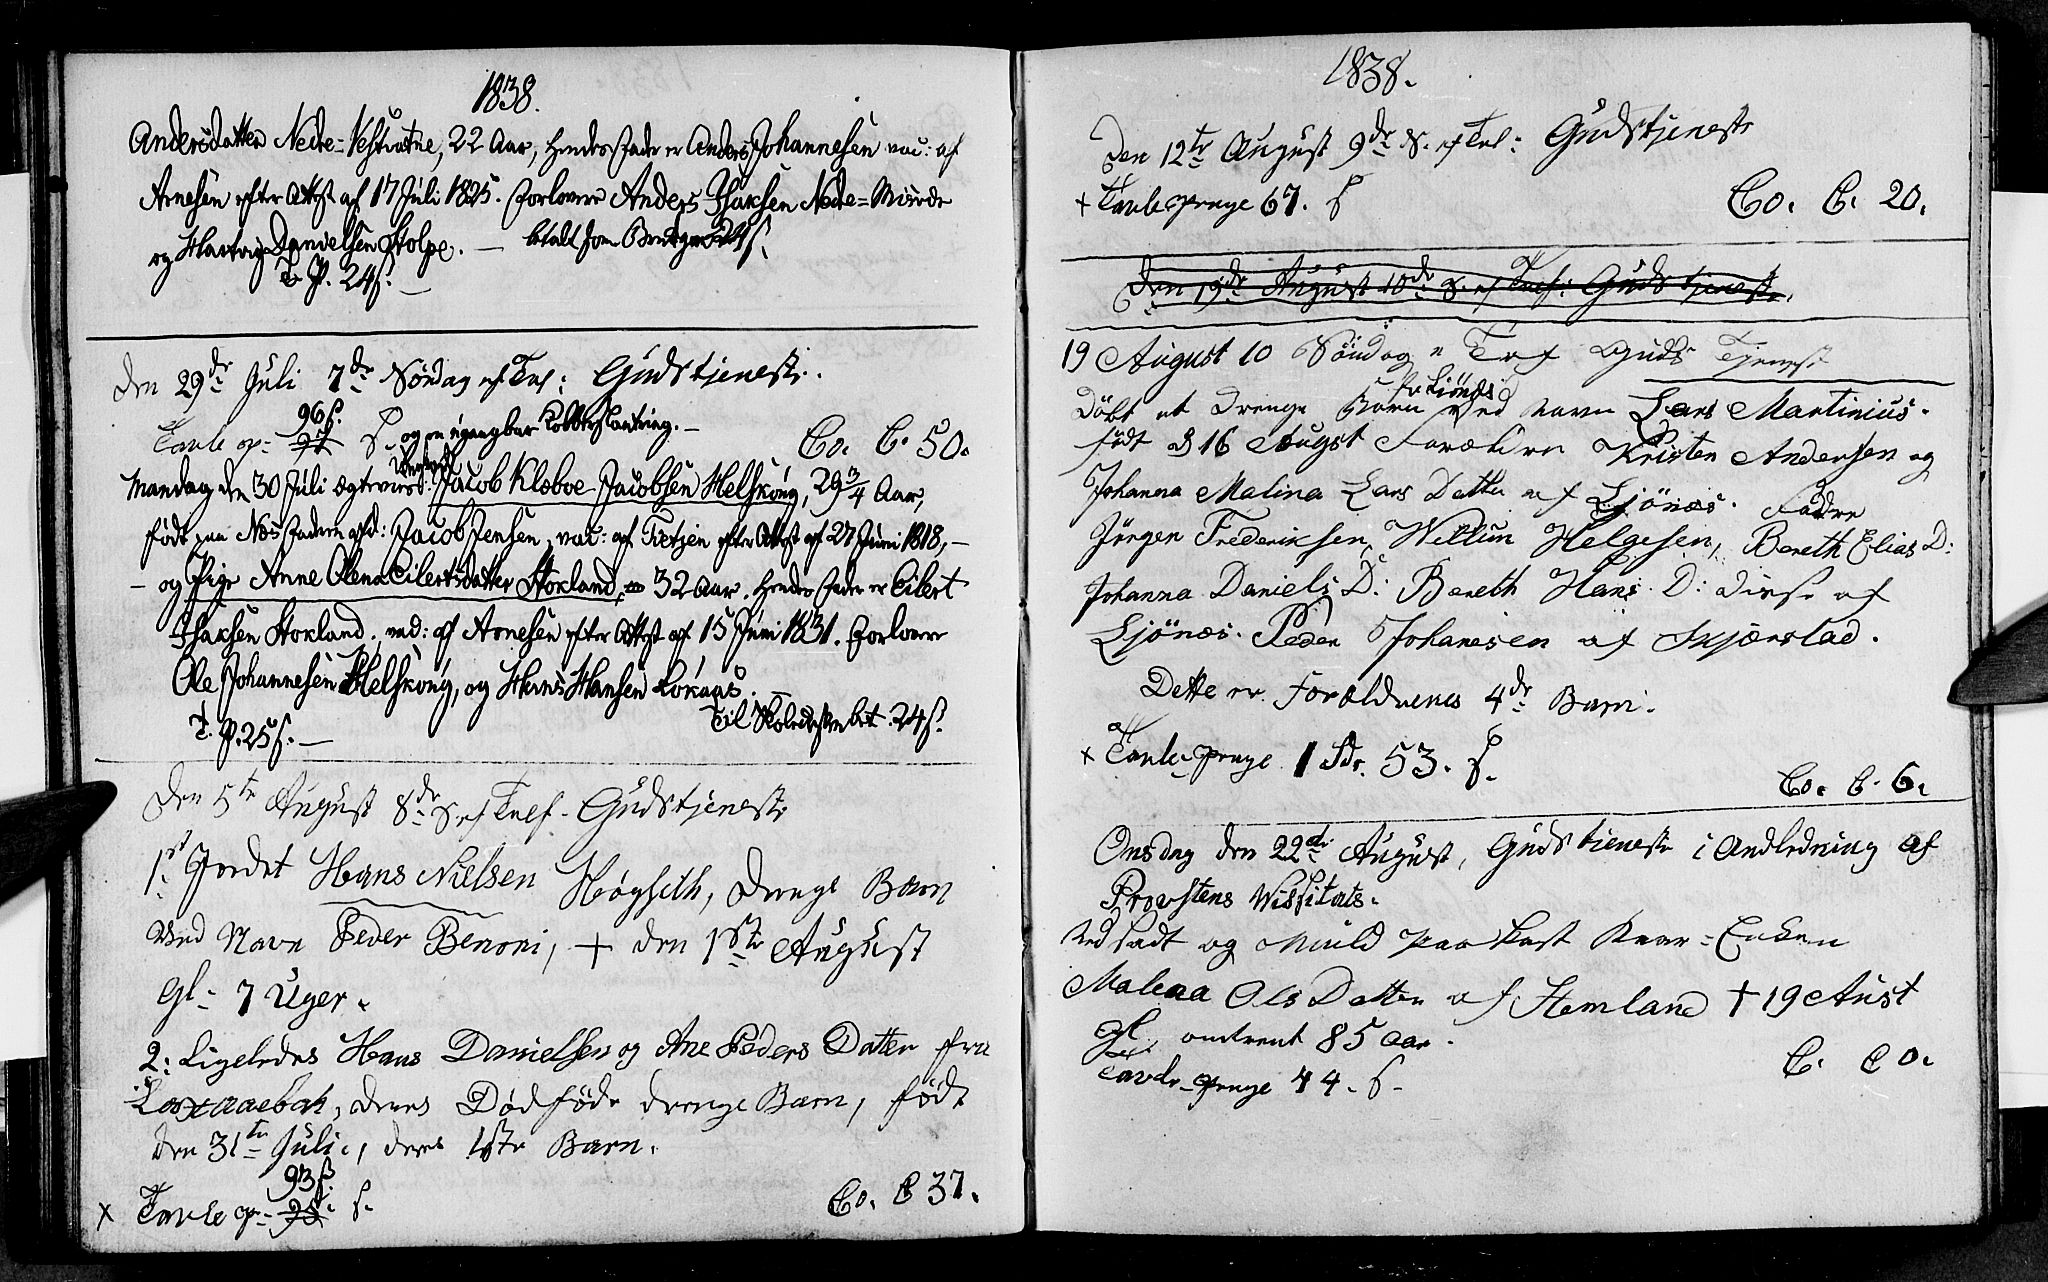 1838.
Andersdatter Nedre=Vestvatne, 22 Aar, hendes fader er Anders Johannesen vac: af
Arnesen efter Attest af 17 Juli 1825. Forlovere Anders Isaksen Nedre=
og Hartvig Danielsen Stolpe. — betalt som Brudgom 24 s.
T. P. 24 s. —
Den 29de Juli 7de Søndag ef Tref: Gudstjeneste.
96 s.
Tavle p- 97 s. og en ugangbar Kobberskilling. —
Co. C. 50.
Mandag den 30 Juli ægteviest: Jacob Klæboe Jacobsen Helskoug, 29 3/4 Aar,
født paa Næs faderen afd: Jacob Jensen, vac: af Tetzen efter Attest af 27 Juni 1818, —
— og Pige Anne Olena Eilertsdatter Stokland, 32 Aar. Hendes fader er Eilert
Isaksen Stokland. vac: af Arnesen efter Attest af 15 Juni 1831. Forlovere
Ole Johannesen Helskoug, og Hans Hansen Løkaas.
Til Skolekassen bet. 24 s.
T. P. 25 s. —
Den 5te August 8de S. ef Tref. Gudstjeneste
1st Jordet Hans Nielsen Høgseth, drenge Barn
ved Navn Peder Benoni, + den 1ste August
Gl- 7 Uger.
2: Ligeledes Hans Danielsen og Ane Peders Datter fra
deres Dødføde drenge Barn, født
den 31te Juli, deres 1ste Barn.
93 s.
x Tavle p- 95 s.
Co. C 37.
1838.
Den 12te August 9de S. ef Tref: Gudstjeneste
+ Tavle penge 67. s
Co. C. 20.
Den 19de August 10de S. ef Tref: Gudstjeneste.
19 August 10 Søndag e Tref Guds Tjeneste
Døbt et drenge Barn ved navn Lars Martinius.
født d 16 August Forældre Kristen Andersen og
Johanna Malina Lars Datter af Ljønæs. Fadre
Jörgen Frederiksen, Willum Helgesen, Bereth Elias D:
Johanna Daniels D: Bereth Hans D: disse af
Ljönæs. Peder Johanesen af Skjærstad.
Dette er Forældrenes 4de Barn.
x Tavle-penge 1 Sdr. 53. s.
Co. C. 6.
Onsdag den 22de August, Gudstieneste i Andledning af
Provstens Vissitats.
Ved ladt og Muld paa kast Kaar=Enken
Malena Ols Datter af Hemland + 19 Aust
gl. omtrent 85 Aar.
Tavle-penge 44. s.
C. C 0.